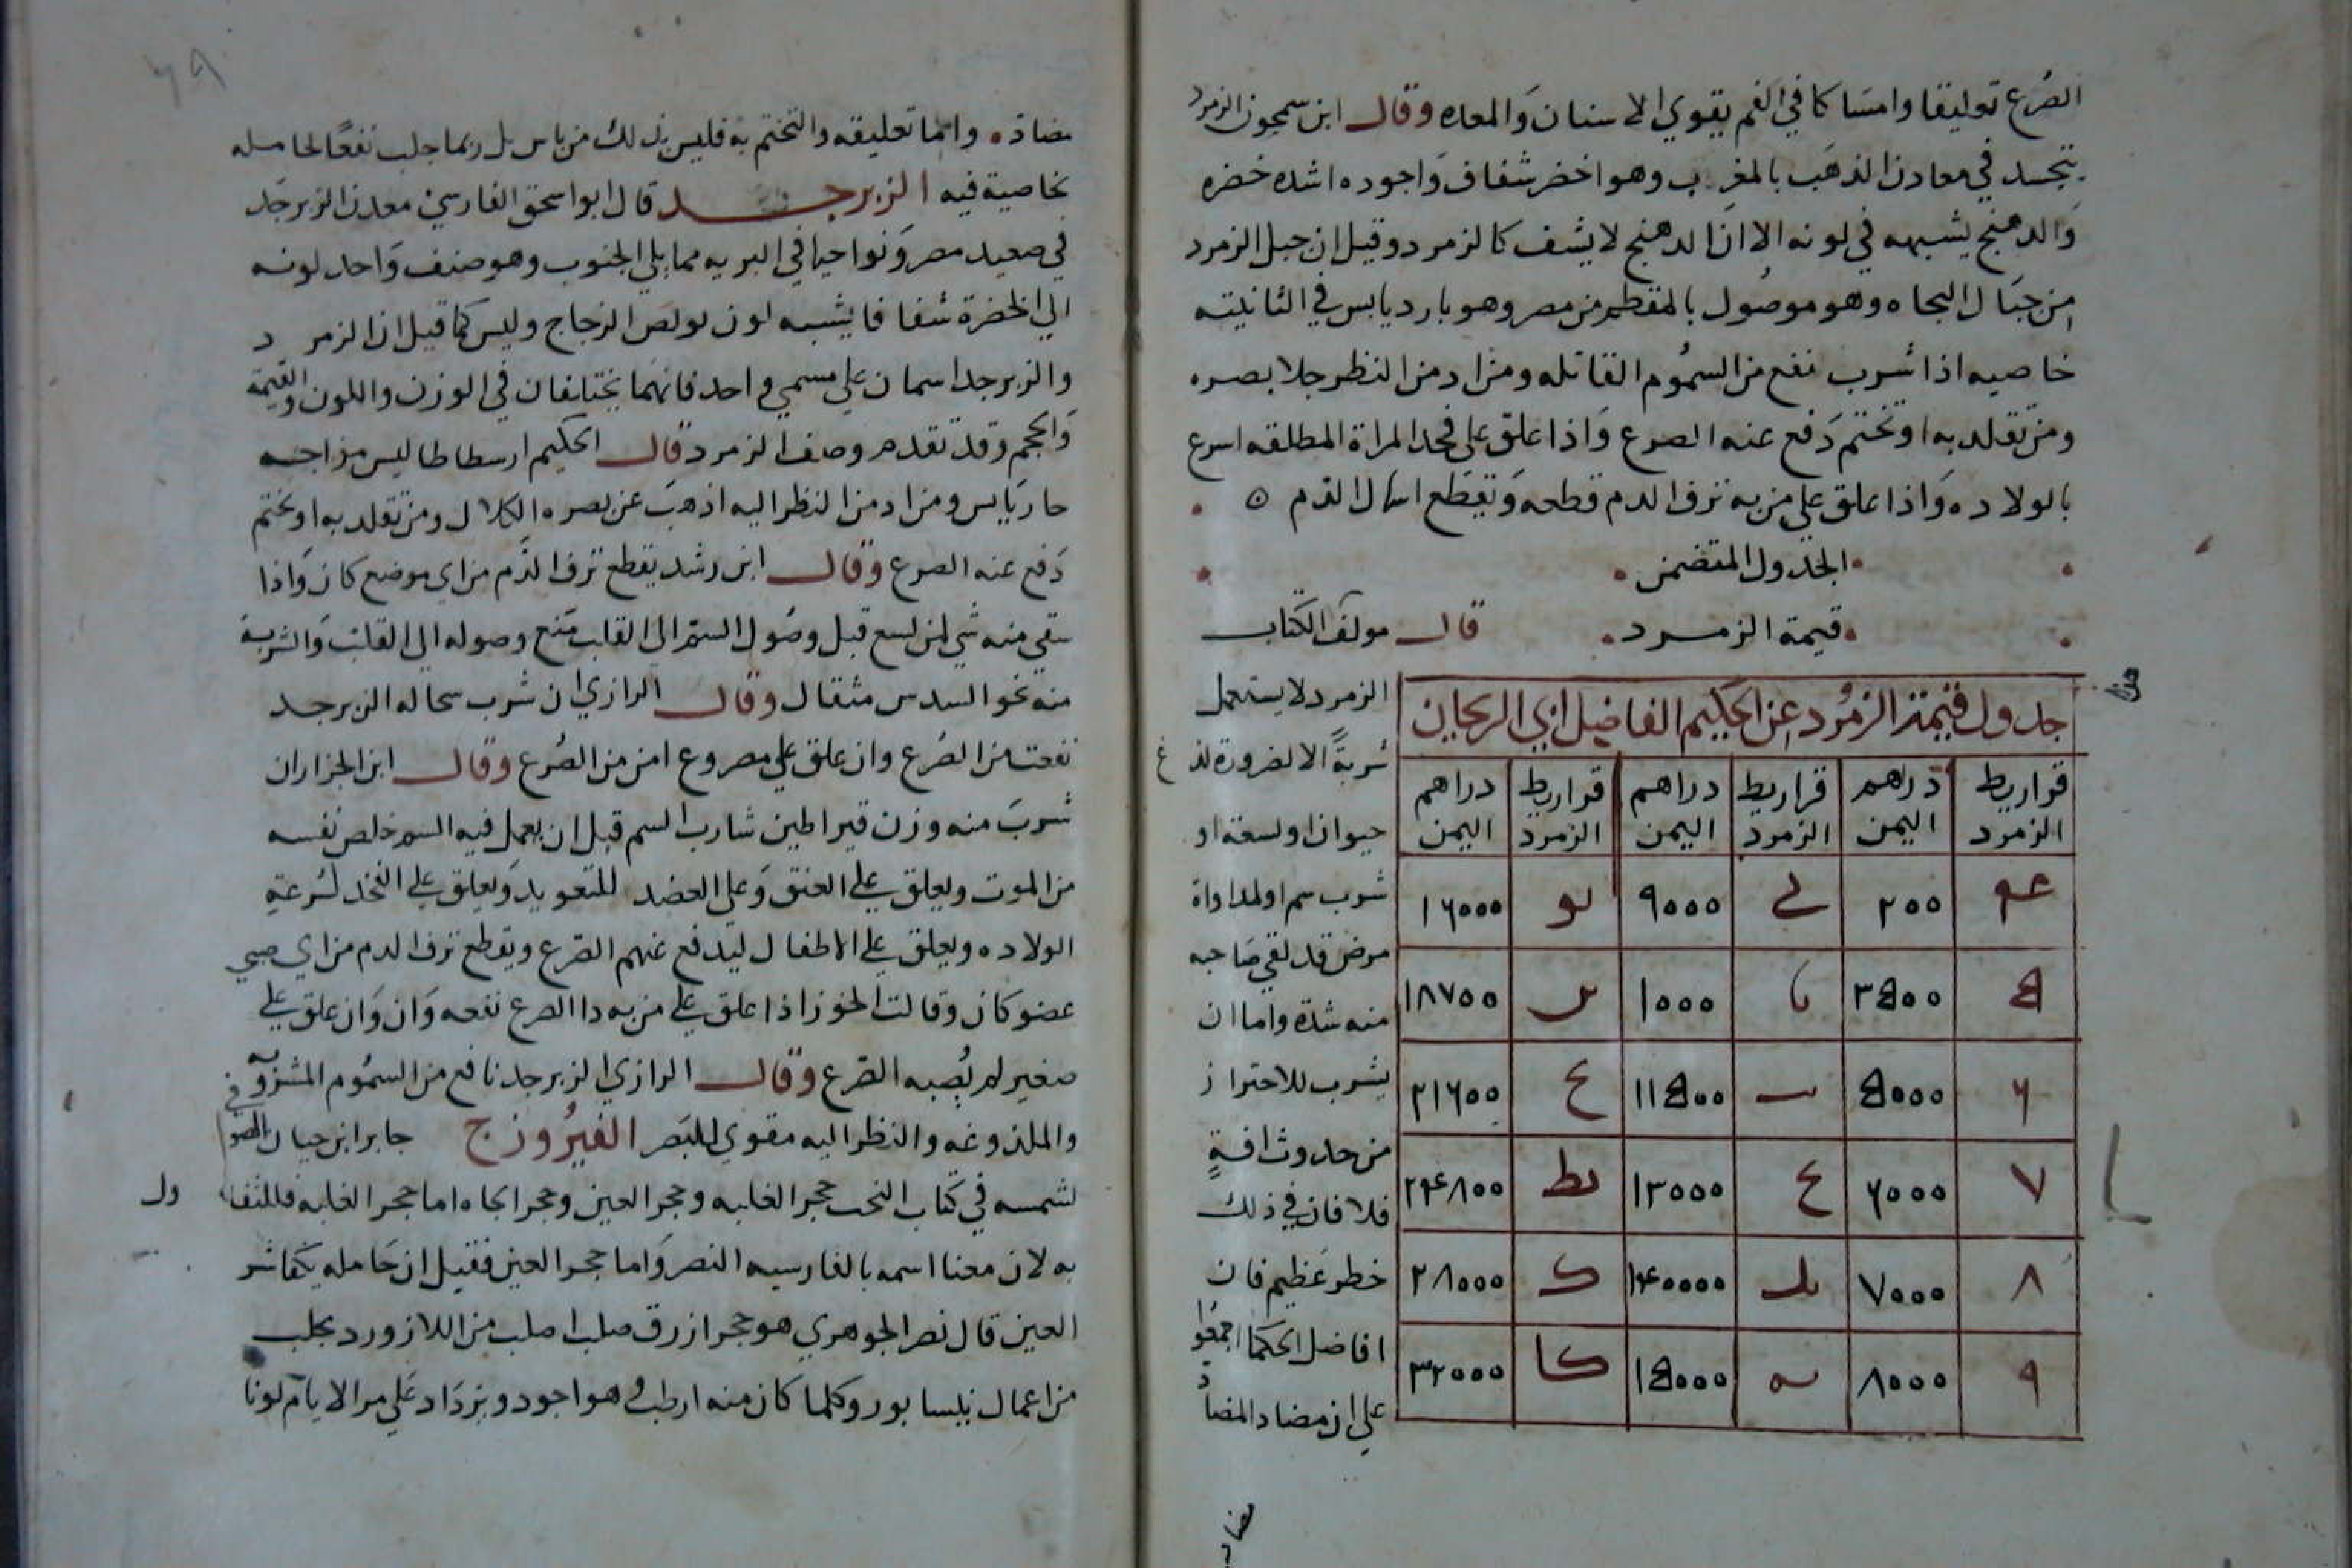 الصرع تعليقا وامساكا في الفم يقوي الاسنان والمعده وقال ابن سمجون الزمرد
يتجسد في معادن الذهب بالمغرب وهو اخضر شفاف واجوده اشده خضره
والدهنج يشبهه في لونه الا ان الدهنج لا يشف كالزمرد وقيل ان جبل الزمرد
من جبال البجاه وهو موصول بالمقطم من مصر وهو بارد يابس في الثانيته
خاصيه اذا شرب نفع من السموم القاتله ومن ادمن النظر جلا بصره
ومن تقلد به او تختم دفع عنه الصرع واذا علق على فخد المراة المطلقه اسرع
بالولاده واذا علق على من به نزف الدم قطعه ويقطع اسهال الدم
الجدول المتضمن
قيمة الزمرد قال مولف الكتاب
جدول قيمة الزمرد عن الحكيم الفاضل ابي الريحان
قراريط الزمرد دراهم اليمن قراريط الزمرد دراهم اليمن قراريط الزمرد دراهم اليمن
٢٠٠ ي ٩٠٠٠ يو ١٦٠٠٠
٥ ٣٥٠٠ يا ١٠٠٠ ير ١٨٧٠٠
٦ ٥٠٠٠ يب ١١٥٠٠ يح ٢١٦٠٠
٧ ٦٠٠٠ يج ١٣٠٠٠ يط ٢٤٨٠٠
٨ ٧٠٠٠ يد ١٤٠٠٠٠ ك ٢٨٠٠٠
٩ ٨٠٠٠ يه ١٥٠٠٠ كا ٣٢٠٠٠
الزمرد لا يستعمل
شربة الا لضرورة لذغ
حيوان او لسعته او
شرب سم او لمداواة
مرض قد لقي صاحبه
منه شدة واما ان
يشرب للاحتراز
من حدوث افة
فلا فان في ذلك
خطر عظيم فان
افاضل الحكما اجمعوا
على ان مضاد المضاد
مضاد واما تعليقه والتختم به فليس بذلك من باس بل ربما جلب نفعا لحامله
بخاصية فيه الزبرجد قال ابو اسحق الفارسي معدن الزبرجد
في صعيد مصر ونواحيها في البريه مما يلي الجنوب وهو صنف واحد لونه
الي الخضرة شفافا يشبه لون لولص الزجاج وليس كما قيل ان الزمرد
والزبرجد اسمان علي مسمي واحد فانهما يختلفان في الوزن واللون والقيمة
والحجم وقد تقدم وصف الزمرد قال الحكيم ارسطاطاليس مزاجه
حار يابس ومن ادمن النظر اليه اذهب عن بصره الكلال ومن تقلد به او تختم
دفع عنه الصرع وقال ابن رشد يقطع نزف الدم من اي موضع كان واذا
سقي منه شي لمن لسع قبل وصول السم الى القلب منع وصوله الى القلب والشربة
منه نحو السدس مثقال وقال الرازي ان شرب سحاله الزبرجد
نفعت من الصرع وان علق علي مصروع امن من الصرع وقال ابن الجزار ان
شرب منه وزن قيراطين شارب السم قبل ان يعمل فيه السم خلص نفسه
من الموت ويعلق على العنق وعلى العضد للتعويد ويعلق على الفخد لسرعة
الولاده ويعلق على الاطفال ليدفع عنهم الصرع ويقطع نزف الدم من اي
عضو كان وقالت الخوز اذا علق على من به دا الصرع نفعه وان وان علق على
صغير لم يصبه الصرع وقال الرازي الزبرجد نافع من السموم المشروبه
والملذوغه والنظر اليه مقوي للبصر الفيروزج جابر ابن حيان الصوفي
لشمسه في كتاب النحب حجر الغلبه وحجر العين وحجر الجاه اما حجر الغلبه فللتفاول
به لان معنا اسمه بالفارسيه النصر واما حجر العين فقيل ان حامله يكفا شر
العين قال نصر الجوهري هو حجر ازرق صلب اصلب من اللازورد يجلب
من اعمال نيسابور وكلما كان منه ارطب فهو اجود ويزداد علي مر الايام لونا